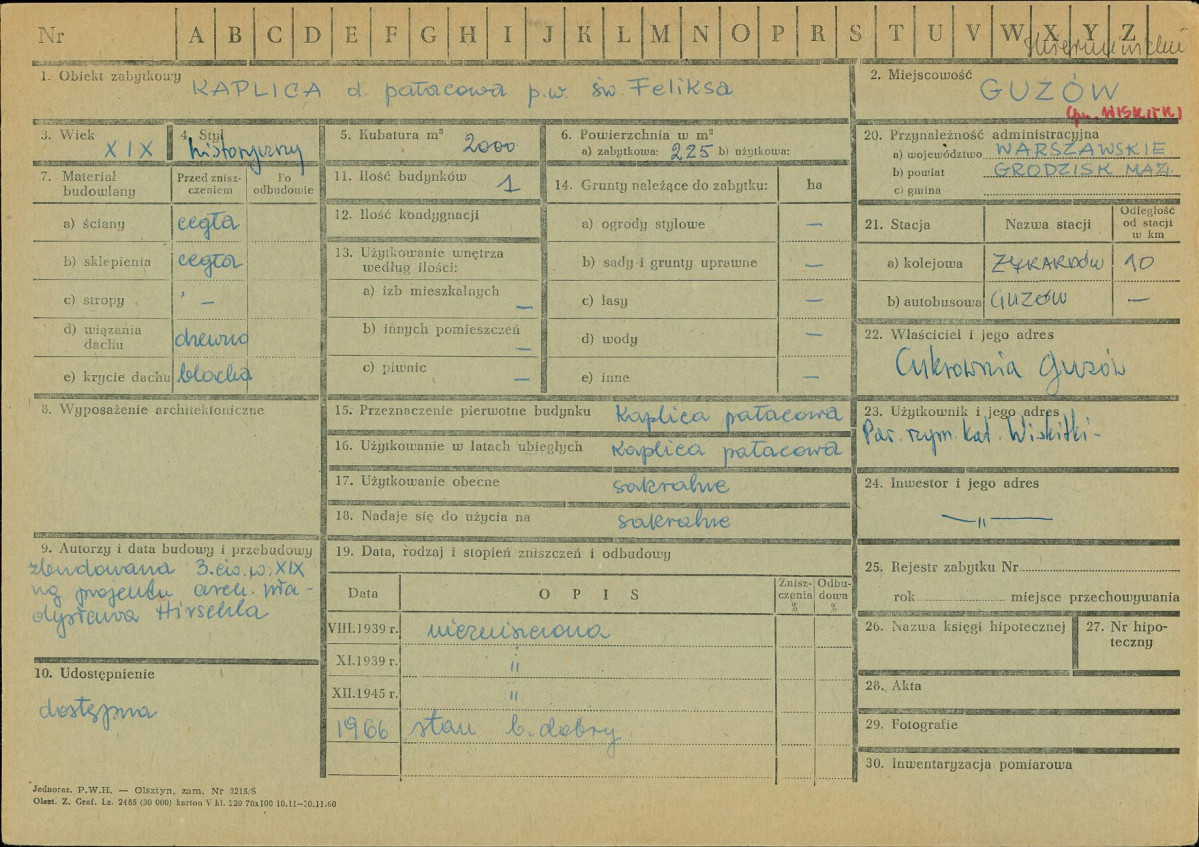 Nr A B C D E F G H I J K L M N O P R S T U V W X Y Z
1. Obiekt zabytkowy KAPLICA d. pałacowa p.w. św. Feliksa
2. Miejscowość GUZÓW
(gm. WISKITKI)
3. Wiek XIX
4. Styl historyczny
5. Kubatura m³ 2000
6. Powierzchnia w m²
a) zabytkowa: 225 b) użytkowa:
7. Materiał budowlany
Przed zniszczeniem
Po odbudowie
a) ściany cegła
b) sklepienia cegła
c) stropy —
d) wiązania dachu drewno
e) krycie dachu blacha
8. Wyposażenie architektoniczne
9. Autorzy i data budowy i przebudowy
zbudowana 3. ćw. w. XIX
wg projektu arch. Wła-
dysława Hirschla
10. Udostępnienie
dostępna
11. Ilość budynków 1
12. Ilość kondygnacji
13. Użytkowanie wnętrza
według ilości:
a) izb mieszkalnych —
b) innych pomieszczeń —
c) piwnic —
14. Grunty należące do zabytku: ha
a) ogrody stylowe —
b) sady i grunty uprawne —
c) lasy —
d) wody —
e) inne —
15. Przeznaczenie pierwotne budynku kaplica pałacowa
16. Użytkowanie w latach ubiegłych kaplica pałacowa
17. Użytkowanie obecne sakralne
18. Nadaje się do użycia na sakralne
19. Data, rodzaj i stopień zniszczeń i odbudowy
Data OPIS Zniszczenia % Odbudowa %
VIII.1939 r. niezniszczona
XI.1939 r. "
XII.1945 r. "
1966 stan b. dobry
20. Przynależność administracyjna
a) województwo WARSZAWSKIE
b) powiat GRODZISK MAZ.
c) gmina
21. Stacja Nazwa stacji Odległość od stacji w km
a) kolejowa ŻYRARDÓW 10
b) autobusowa GUZÓW —
22. Właściciel i jego adres
Cukrownia Guzów
23. Użytkownik i jego adres
Par. rzym. kat. Wiskitki-
24. Inwestor i jego adres
— " —
25. Rejestr zabytku Nr
rok miejsce przechowywania
26. Nazwa księgi hipotecznej
27. Nr hipo-
teczny
28. Akta
29. Fotografie
30. Inwentaryzacja pomiarowa
Jednoraz. P.W.H. — Olsztyn, zam. Nr 3215/S
Olszt. Z. Graf. Lz. 2485 (30 000) karton V kl. 220 70x100 10.11—30.11.60